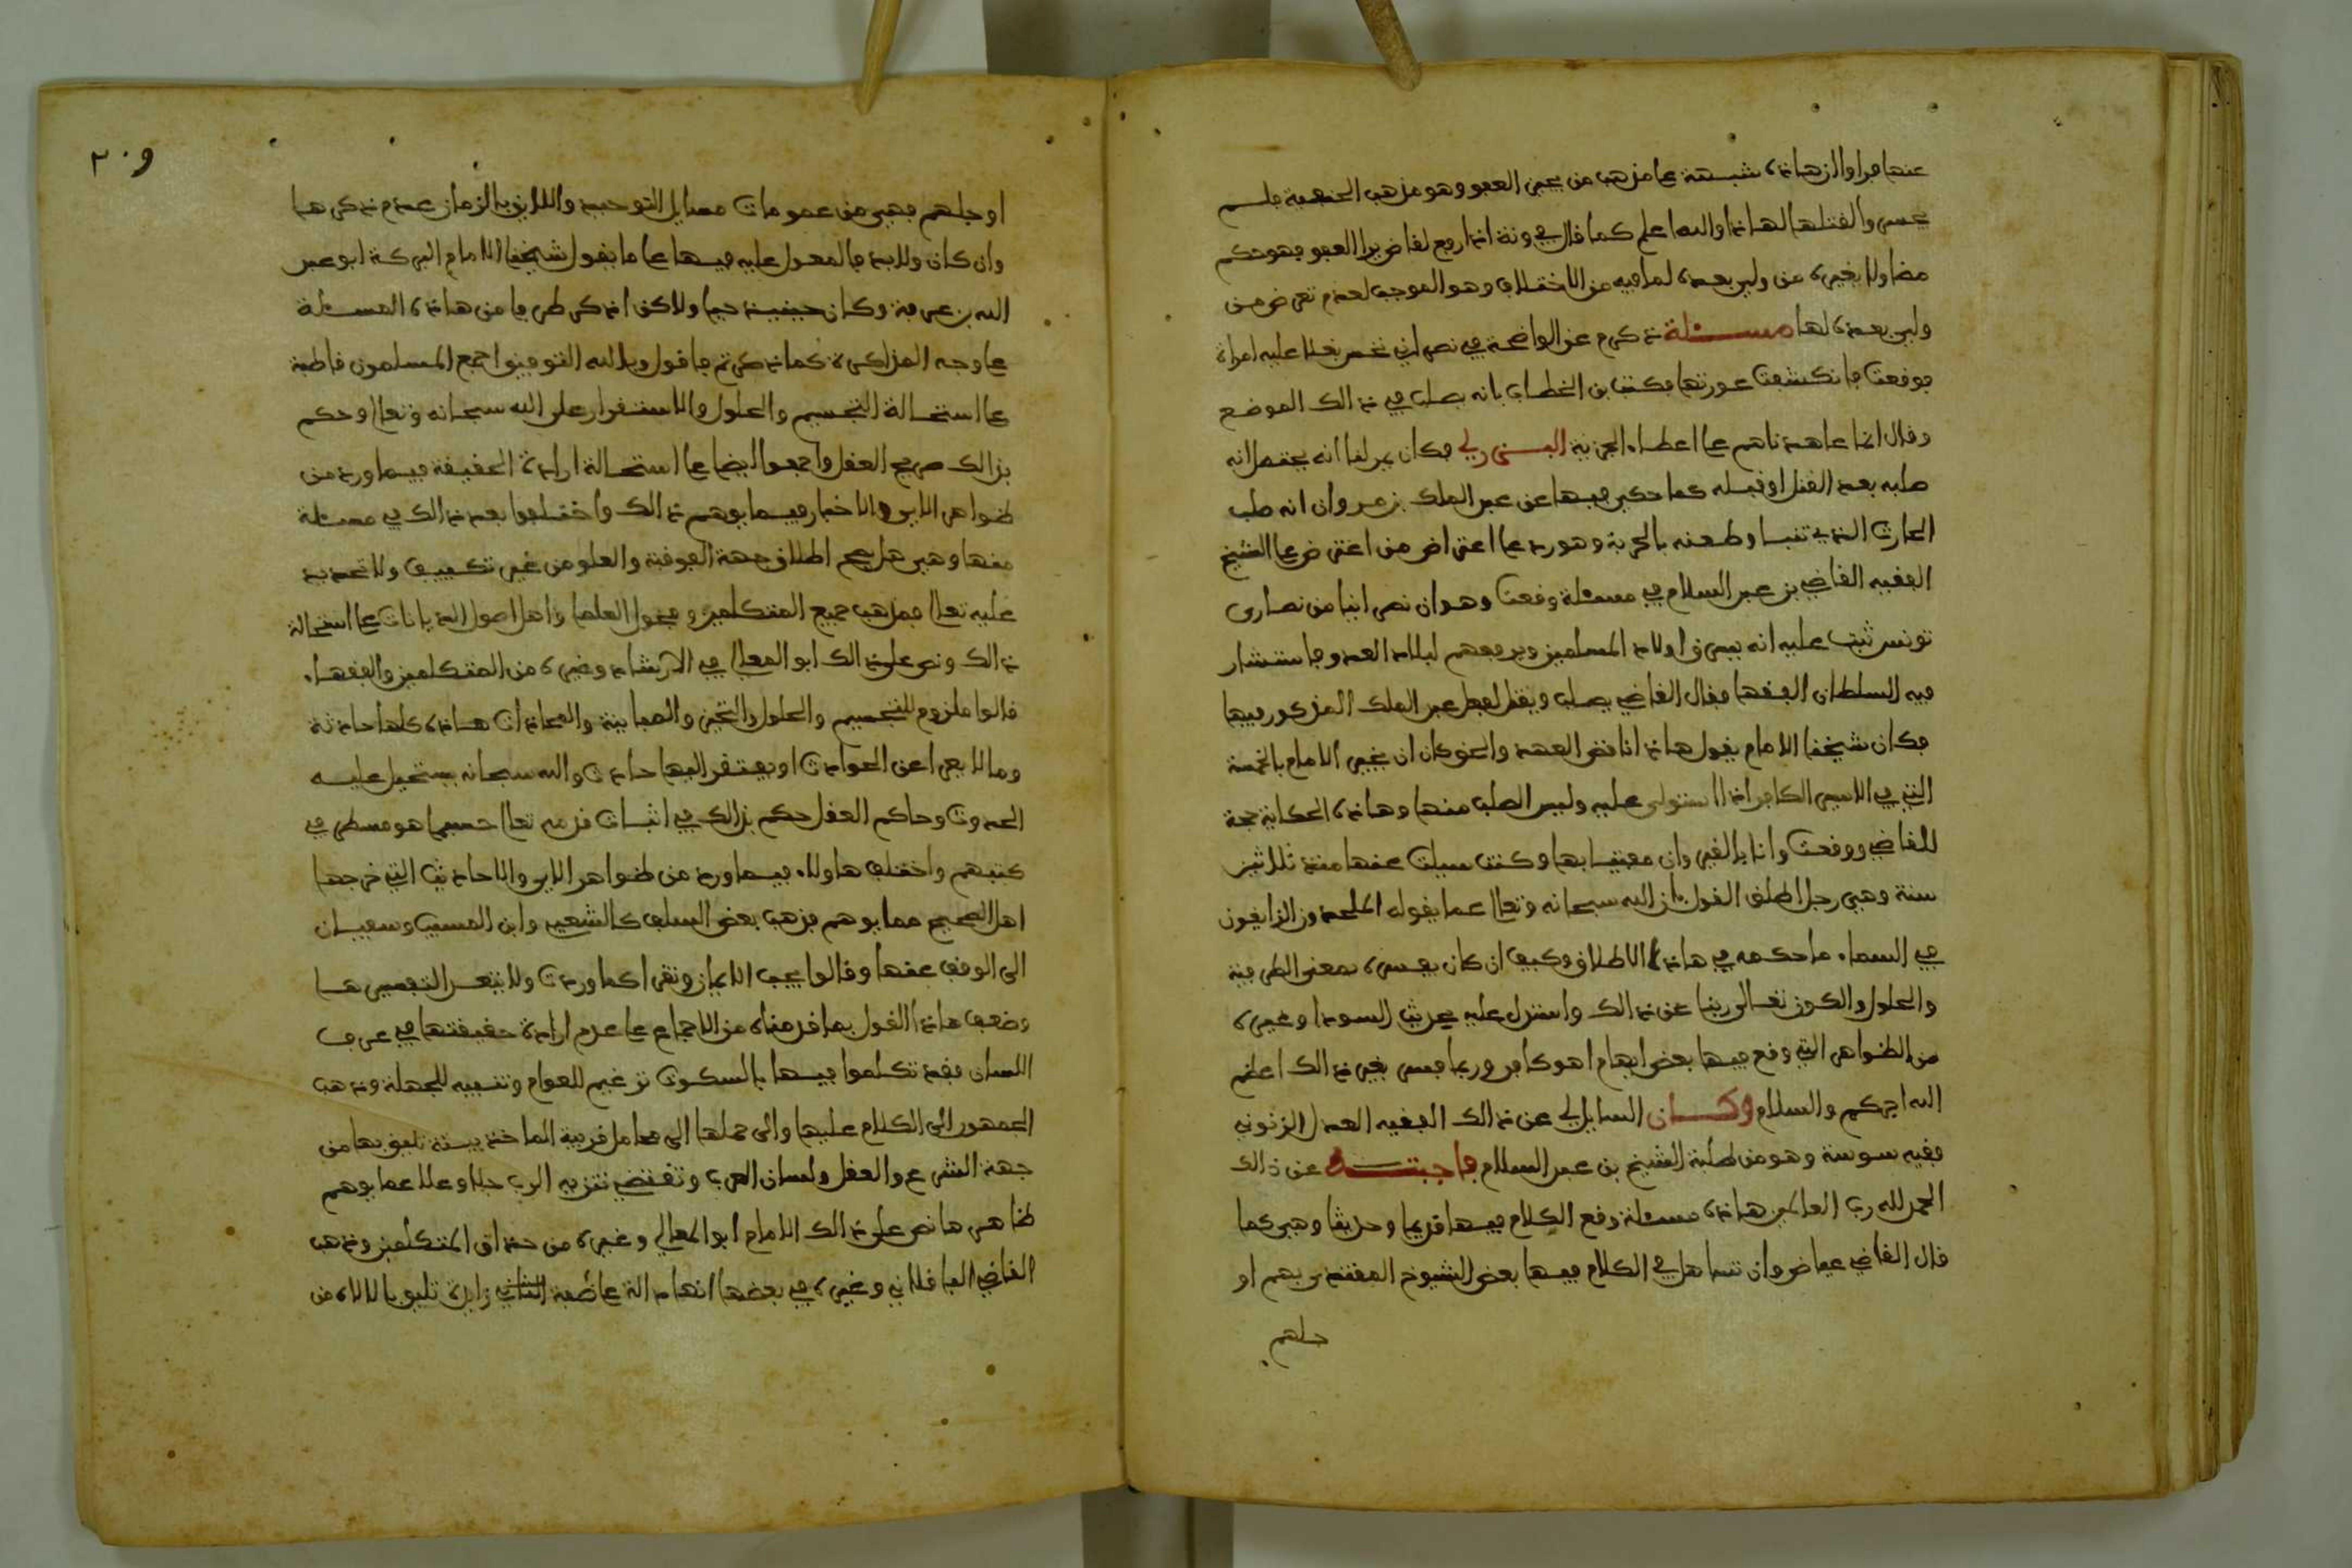 عنها فرأوا أن هاذه شبهة على مذهب من يجيز العفو وهو مذهب الحنفية فلم
يحسن والقتلها لهاذا والله أعلم كما قال في ونة إذا رفع لقاض يرا العفو فهو حكم
مضا ولا يغيره من ولي بعده لما فيه من الاختلاف وهو الموجب لعدم تعرض من
ولي بعده لها مسئلة ذكرم عن الواضحة في نصراني نخس بغلا عليه امراة
فوقعت فانكشفت عورتها فكتب بن الخطاب بانه يصلب في ذالك الموضع
وقال انما عاهدناهم على اعطاء الجزية البرزلي فكان يمر لنا انه يحتمل انه
صلبه بعد القتل او قبله كما حكى فيها عن عبد الملك بن مروان انه صلب
الحارث الذي تنبا وطعنه بالحربة وهو رد على اعتراض من اعترض على الشيخ
الفقيه القاضي بن عبد السلام في مسئلة وقعت وهو ان نصرانيا من نصارى
تونس ثبت عليه انه يسرق اولاد المسلمين ويرفعهم لبلاد العدو فاستشار
فيه السلطان الفقها فقال القاضي يصلب ويقتل لفعل عبد الملك المذكور فيها
فكان شيخنا الامام يقول هاذا ناقض العهد والحق كان ان يخير الامام بالخمسة
التي في الاسير الكافر اذا استولى عليه وليس الصلب منها وهاذه الحكاية حجة
للقاضي ووقعت وانا بالقيروان مفتيا بها وكنت سيلت عنها منذ ثلاثين
سنة وهي رجل اطلق القول بان الله سبحانه وتعالا عما يقوله الملحدون الزايغون
في السماء ما حكمه في هاذا الاطلاق وكيف ان كان يفسره بمعنى الظرفية
والحلول والكون تعالى ربنا عن ذالك واستدل عليه بحديث السودا وغيره
من الظواهر التي وقع فيها بعض ايهام اهو كافر وربما فسر بغير ذالك اعظم
الله اجركم والسلام وكان السايل لي عن ذالك الفقيه العدل الزنوني
فقيه سوسة وهو من طلبة الشيخ بن عبد السلام فاجبته عن ذالك
الحمد لله رب العالمين هاذه مسئلة وقع الكلام فيها قديما وحديثا وهي كما
قال القاضي عياض وان تساهل في الكلام فيها بعض الشيوخ المقتدى بهم او
جلهم
٢٠٩
او جلهم فهي من عمومات مسايل التوحيد واللايق بالزمان عدم ذكرها
وان كان ولابد فالمعول عليه فيها على ما يقول شيخنا الامام البركة ابو عبد
الله بن عرفة وكان حينيذ حيا ولاكن اذكر طرفا من هاذه المسئلة
على وجه المذاكرة كما ذكرتم فاقول وبالله التوفيق اجمع المسلمون قاطبة
على استحالة التجسيم والحلول والاستقرار على الله سبحانه وتعالا وحكم
بذالك صريح العقل واجمعوا ايضا على استحالة ارادة الحقيقة فيما ورد من
ظواهر الاي والاخبار فيما يوهم ذالك واختلفوا بعد ذالك في مسئلة
منها وهي هل يصح اطلاق جهة الفوقية والعلو من غير تكييف ولا تحديد
عليه تعالا فمذهب جميع المتكلمين وفحول العلما واهل اصول الديانات على استحالة
ذالك ونص على ذالك ابو المعالي في الارشاد وغيره من المتكلمين والفقهاء
قالوا ملزوم للتجسيم والحلول والتحيز والمباينة والمحاذات هاذه كلها حادثة
وما لا يعرا عن الحوادث او يفتقر اليها حادث والله سبحانه يستحيل عليه
الحدوث وحاكم العقل حكم بذالك في اثبات قدمه تعالا حسبما هو مسطر في
كتبهم واختلف هاولاء فيما ورد من ظواهر الاي والاحاديث التي خرجها
اهل الصحيح مما يوهم فذهب بعض السلف كالشعبي وابن المسيب وسفيان
الى الوقف عنها وقالوا يجب الايمان وتقرا كما وردت ولا يتعدا لتفسيرها
وضعف هاذا القول بما قدمناه من الاجماع على عدم ارادة حقيقتها في عرف
اللسان فقد تكلموا فيها بالسكوت ترغيم للعوام وتنبيه للجهلة وذهب
الجمهور الى الكلام عليها والى حملها الى محامل قريبة الماخذ تليق بها من
جهة الشرع والعقل ولسان العرب وتقتضي تنزيه الرب جلا وعلا عما يوهم
ظاهرها نص على ذالك الامام ابو المعالي وغيره من حذاق المتكلمين وذهب
القاضي الباقلاني وغيره في بعضها انها دالة على صفة زايدة تليق بالالاه من